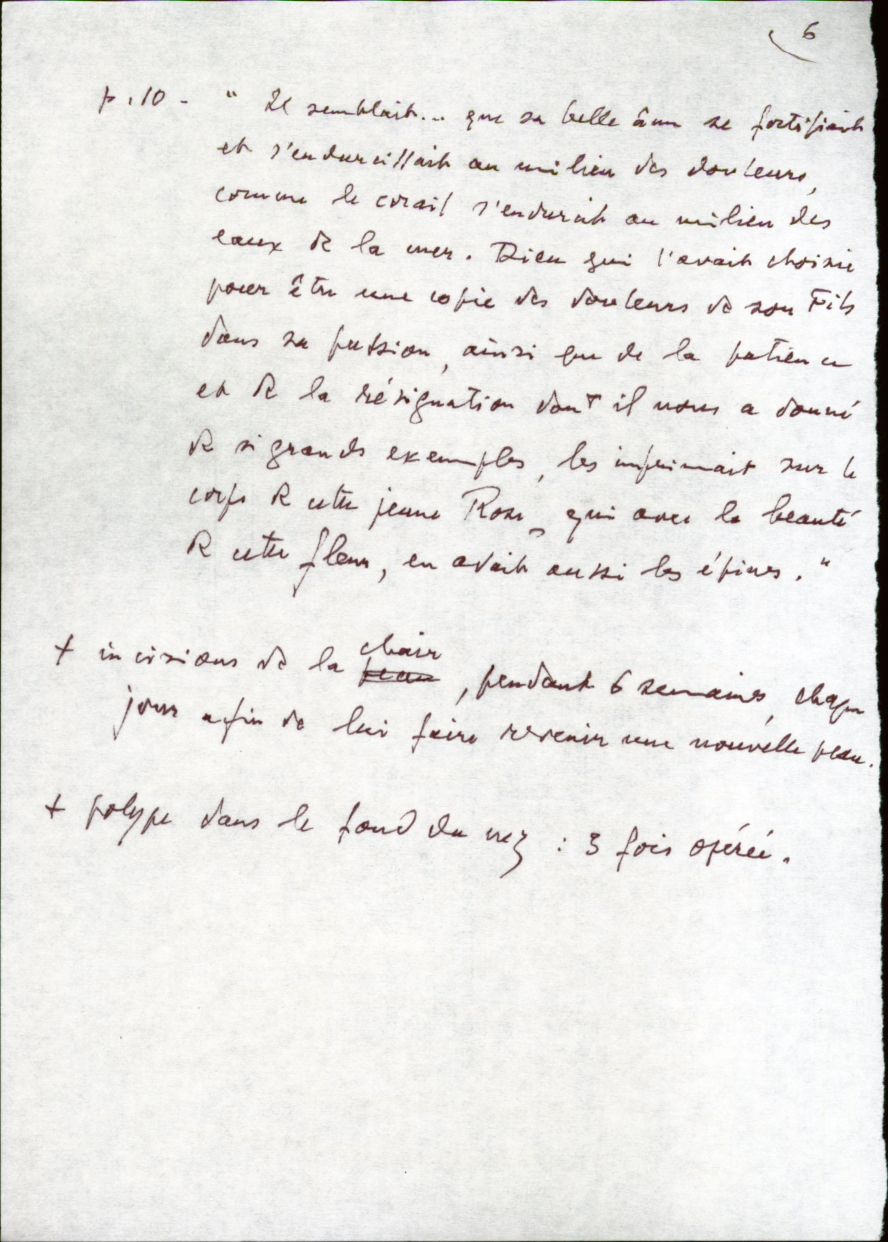 6
p. 10 - " Il semblait... que sa belle âme se fortifiait
et s'endurcissait au milieu des douleurs,
comme le corail s'endurcit au milieu des
eaux de la mer. Dieu qui l'avait choisie
pour être une copie des douleurs de son Fils
dans sa passion, ainsi que de la patience
et de la résignation dont il nous a donné
de si grands exemples, les imprimait sur le
corps de cette jeune Rose, qui avec la beauté
de cette fleur, en avait aussi les épines. "
+ incisions de la peau chair, pendant 6 semaines, chaque
jour afin de lui faire revenir une nouvelle peau.
+ polype dans le fond du nez : 3 fois opérée.